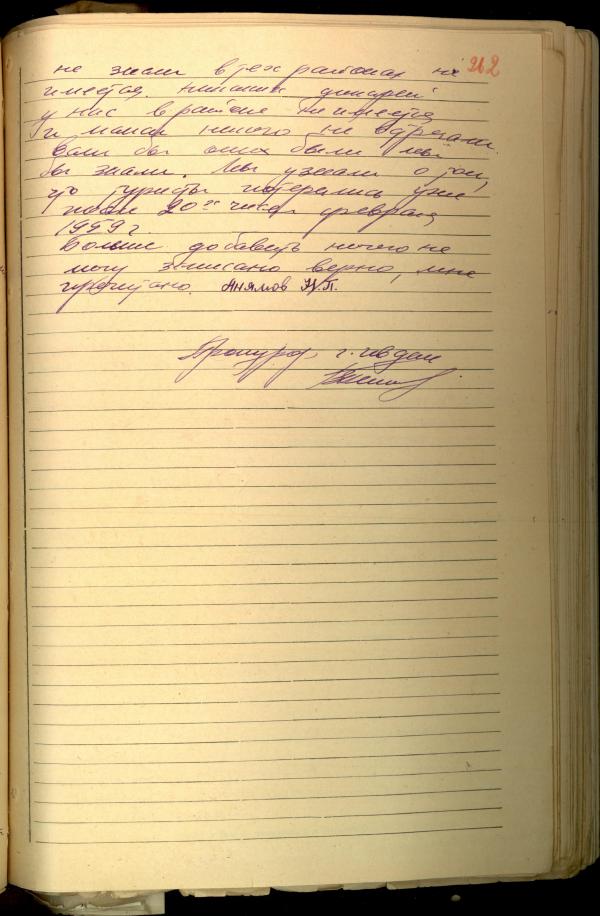 262
не знаем в тех районах не
имеется. никаких дикарей
у нас в районе не имеется
и манси никого не встречали.
Если бы они были мы
бы знали. Мы узнали о том,
что туристы потерялись уже
после 20х чисел февраля
1959 г.
Больше добавить ничего не
могу записано верно, мне
прочитано. Анямов Н.П.
Прокурор г. Ивдель